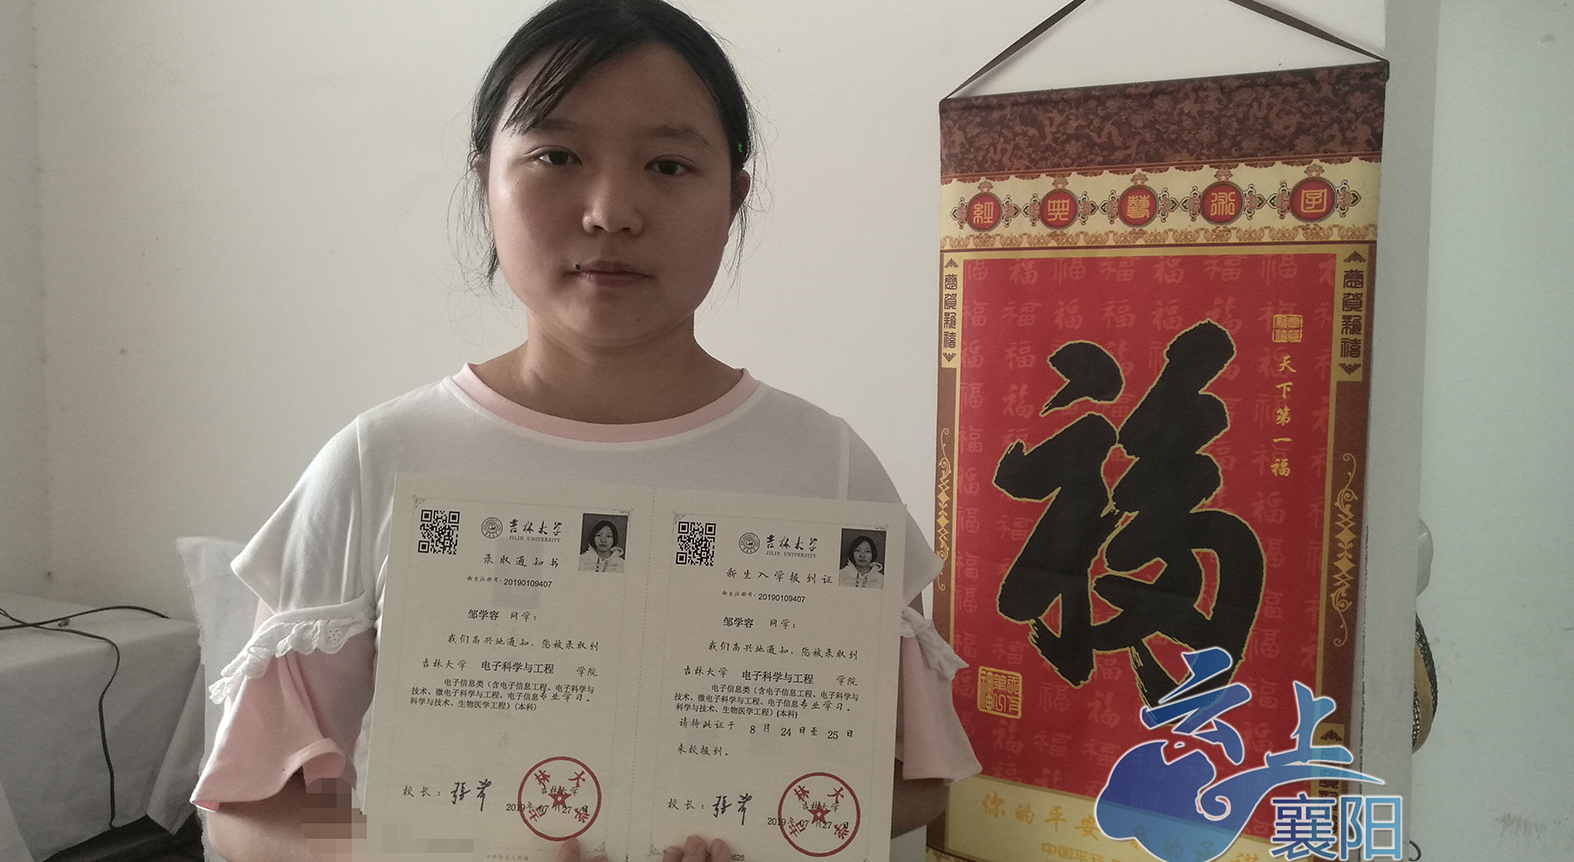 吉林大学
JILIN UNIVERSITY
录取通知书
新生注册号：20190109407
邹学容 同学：
我们高兴地通知，您被录取到
吉林大学 电子科学与工程 学院
电子信息类（含电子信息工程、电子科学与
技术、微电子科学与工程、电子信息专业学习。
科学与技术、生物医学工程）(本科)
校长：
吉林大学
2019年07月27日
吉林大学
JILIN UNIVERSITY
新生入学报到证
新生注册号：20190109407
邹学容 同学：
我们高兴地通知，您被录取到
吉林大学 电子科学与工程 学院
电子信息类（含电子信息工程、电子科学与
技术、微电子科学与工程、电子信息专业学习。
科学与技术、生物医学工程）(本科)
请持此证于 8 月 24 日至 25 日
来校报到。
校长：
吉林大学
2019年07月27日
經典藝術字
恭賀新禧
恭賀新禧
天下第一福
福
你的平安
中国平安
云上
襄阳